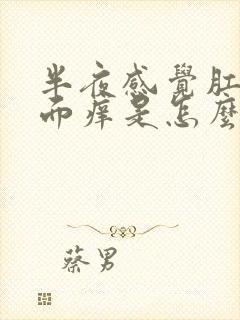 半夜感覺肛
而痒是怎麼
蔡男